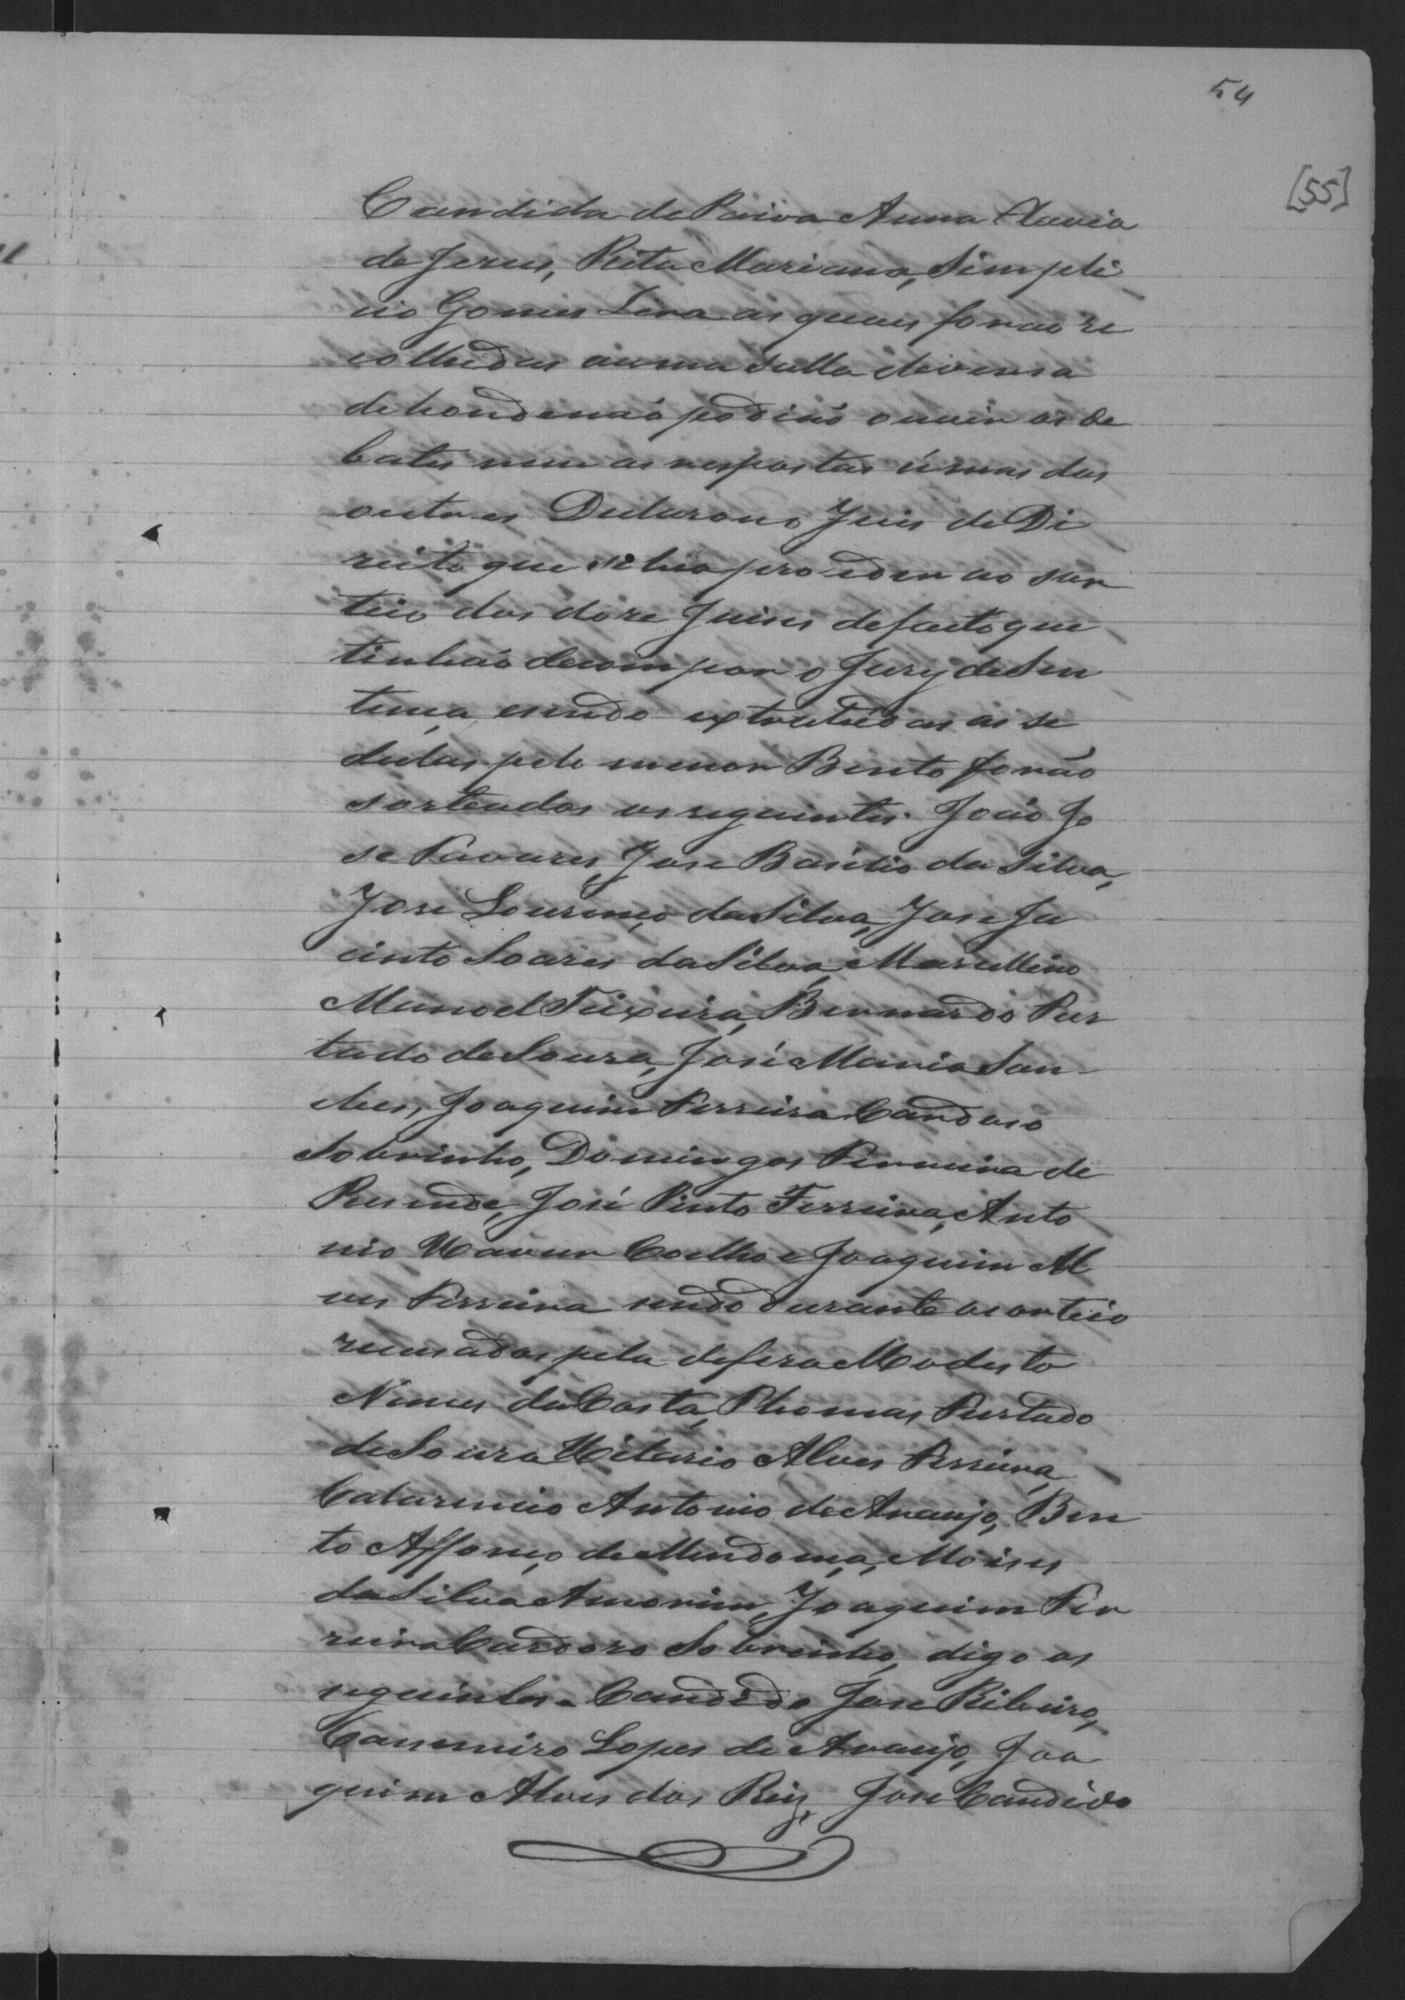 54
[55]
Candida de Paiva Anna Flavia
de Jesus, Rita Mariana, Simpli
cio Gomes Lira as quaes forao re
colhedas auma salla diversa
dehondenaó podiaó ouvir os de
bates nem as respostas úmas das
outras Declarou o Juis de Di
reito que se hia proceder ao sor
teio dos doze Juises defactoque
tinhaó decompor o Jury deSen
tença, esendo extrahidas as se
dulas pelo menor Bento forão
sorteados os seguintes. João Jo
se Tavares, Jose Basilio da Silva,
Jose Lourenço daSilva, Jose Ja
cinto Soares daSilva, Marcellino
Manoel Teixeira, Bernardo Fur
tado deSouza, José Maria San-
ches, Joaquim Ferreira Cardoso
Sobrinho, Domingos Ferreira de
Resende, José Pinto Ferreira, Anto
nio Xavier Coelho e Joaquim Al
ves Ferreira sendo durante osorteio
recusados pela defeza Modesto
Nunes da Costa, Thomas Furtado
deSouza Hilario Alves Ferreira,
Antonio de Araujo, Ben
to Affonço de Mendonça, Moises
daSilva Amorim, Joaquim Fer
reira Cardozo Sobrinho, digo os
seguintes. Candido Jose Ribeiro,
Casemiro Lopes de Araujo, Joa
quim Alves dos Reis, Jose Candido